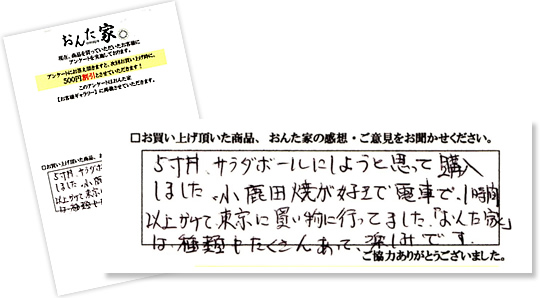 おんた家
現在、商品を買っていただいたお客様に
アンケートを実施しております。
アンケートにお答え頂きますと、次回お買い上げ時に、
500円割引とさせていただきます！
このアンケートはおんた家
【お客様ギャラリー】に掲載させていただきます。
□お買い上げ頂いた商品、お
5寸丼、サラダボール
しました。小鹿田焼
以上かけて東京
は種類
□お買い上げ頂いた商品、おんた家の感想・ご意見をお聞かせください。
5寸丼、サラダボールにしようと思って購入
しました。小鹿田焼が好きで電車で、1時間
以上かけて東京に買い物に行ってました。「おんた家」
は種類もたくさんあって、楽しみです。
ご協力ありがとうございました。